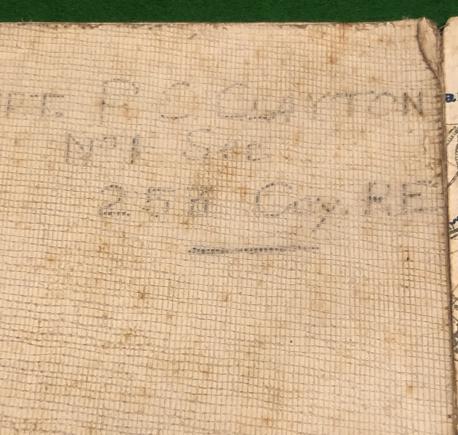 PT. F C CLAYTON
No 1 Sec
Coy. RE